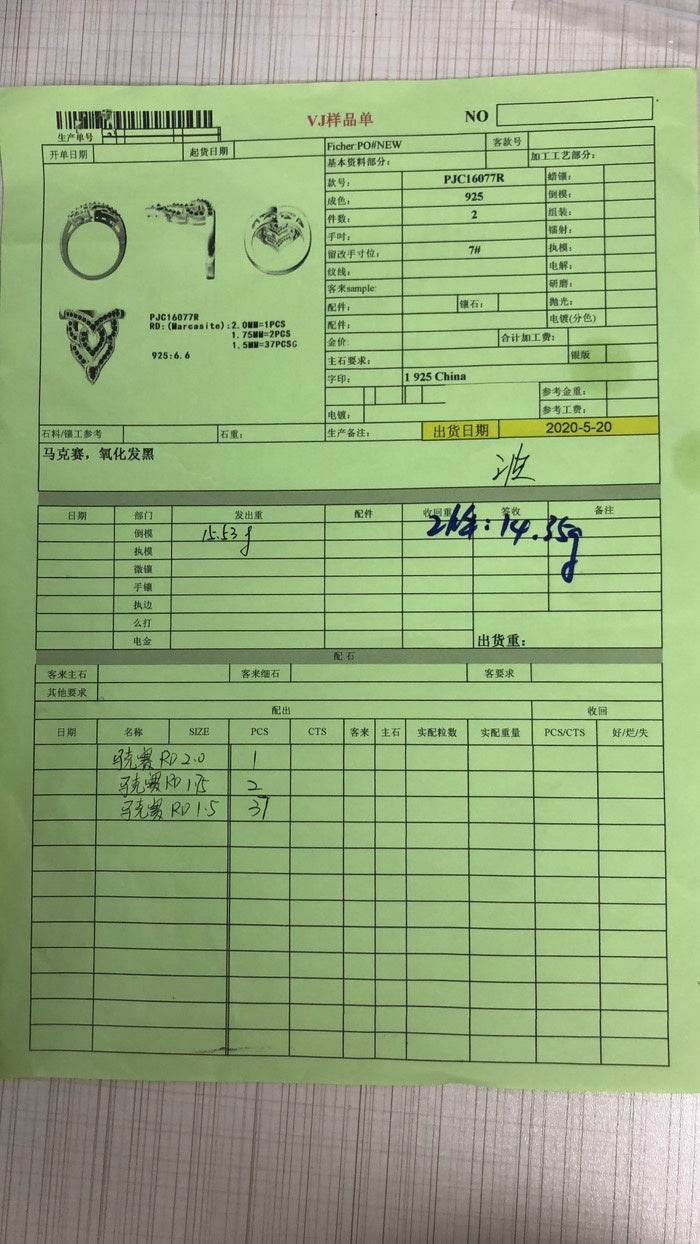 VJ样品单
NO
生产单号
开单日期 起货日期 Ficher:PO#NEW 客款号
基本资料部分: 加工工艺部分:
款号: PJC16077R 蜡镶:
成色: 925 倒模:
件数: 2 组装:
手吋: 镭射:
留改手寸位: 7# 执模:
纹线: 电解:
客来sample: 研磨:
配件: 镶石: 抛光:
配件: 电镀(分色)
金价: 合计加工费:
主石要求: 银版
字印: 1 925 China
参考金重:
电镀: 参考工费:
PJC16077R
RD:(Marcasite):2.0MM=1PCS
1.75MM=2PCS
1.5MM=37PCSG
925:6.6
石料/镶工参考 石重: 生产备注: 出货日期 2020-5-20
马克赛，氧化发黑
日期 部门 发出重 配件 收回重 签收 备注
倒模 15.53g 2件: 14.35g
执模
微镶
手镶
执边
么打
电金 出货重:
配石
客来主石 客来细石 客要求
其他要求
配出 收回
日期 名称 SIZE PCS CTS 客来 主石 实配粒数 实配重量 PCS/CTS 好/烂/失
马克赛 RD 2.0 1
马克赛 RD 1.75 2
马克赛 RD 1.5 37